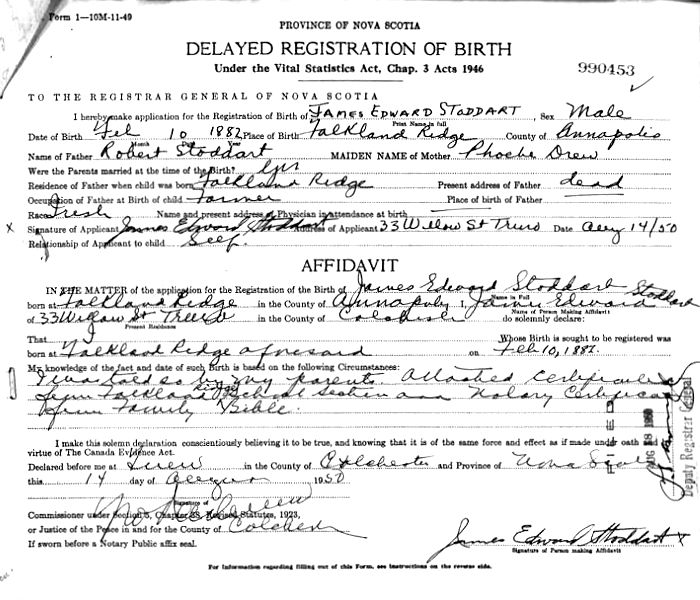 Form 1—10M-11-49
PROVINCE OF NOVA SCOTIA
DELAYED REGISTRATION OF BIRTH
Under the Vital Statistics Act, Chap. 3 Acts 1946
990453
TO THE REGISTRAR GENERAL OF NOVA SCOTIA
I hereby make application for the Registration of Birth of JAMES EDWARD STODDART, Sex Male
Print Name in full
Date of Birth Feb 10 1882 Place of Birth Falkland Ridge County of Annapolis
Month Day Year
Name of Father Robert Stoddart MAIDEN NAME of Mother Phoebe Drew
Were the Parents married at time of the Birth? Yes
Residence of Father when child was born Falkland Ridge Present address of Father dead
Occupation of Father at Birth of child Farmer Place of birth of Father
Race Irish Name and present address of Physician in attendance at birth
x Signature of Applicant James Edward Stoddart Address of Applicant 33 Willow St Truro Date Aug 14/50
Relationship of Applicant to child Self.
AFFIDAVIT
IN THE MATTER of the application for the Registration of the Birth of James Edward Stoddart
Name in Full
born at Falkland Ridge in the County of Annapolis I, James Edward Stoddart
Name of Person Making Affidavit
of 33 Willow St Truro in the County of Colchester do solemnly declare:
Present Residence
That Whose Birth is sought to be registered was
born at Falkland Ridge aforesaid on Feb 10, 1882.
My knowledge of the fact and date of such Birth is based on the following Circumstances:
I was told so by my parents. Attached Certificate
from Falkland Ridge School Section and Notary Certificate
from Family Bible.
I make this solemn declaration conscientiously believing it to be true, and knowing that it is of the same force and effect as if made under oath and by
virtue of The Canada Evidence Act.
Declared before me at Truro in the County of Colchester and Province of Nova Scotia
this 14 day of August 1950
Signature of
Commissioner under Section 5, Chapter 38, Revised Statutes, 1923,
or Justice of the Peace in and for the County of Colchester
If sworn before a Notary Public affix seal.
James Edward Stoddart x
Signature of Person making Affidavit
For Information regarding filling out of this Form, see instructions on the reverse side.
FILED
AUG 18 1950
Deputy Registrar General